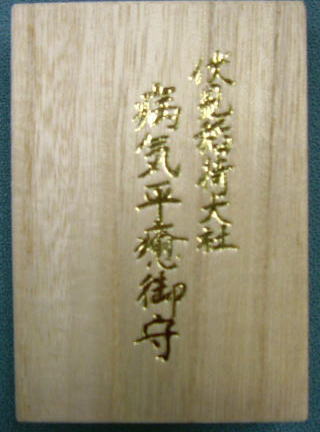 伏見稲荷大社
病気平癒御守